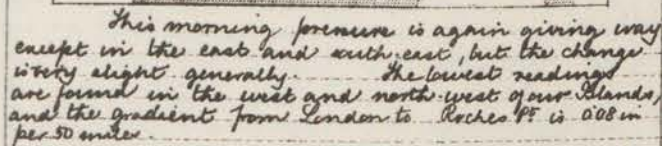 This morning pressure is again giving way
except in the east and south-east, but the change
is very slight generally. The lowest readings
are found in the west and north-west of our Islands,
and the gradient from London to Roches Pt is 0.08 in
per 50 miles.